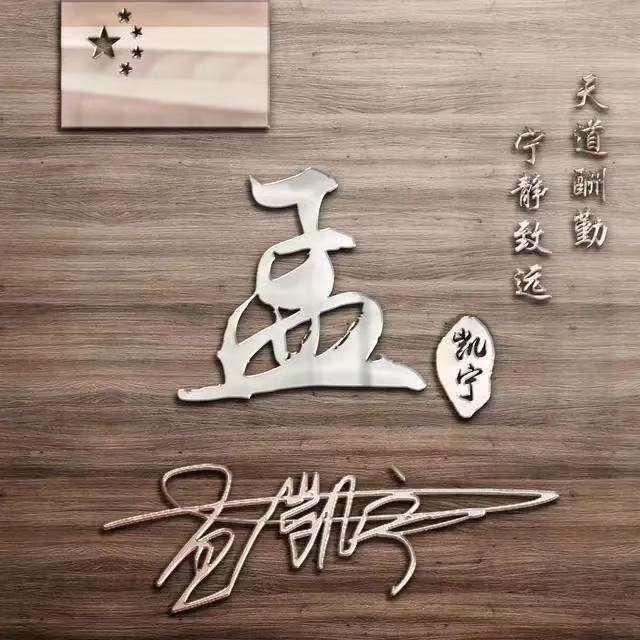 天道酬勤
宁静致远
孟
凯宁
孟凯宁